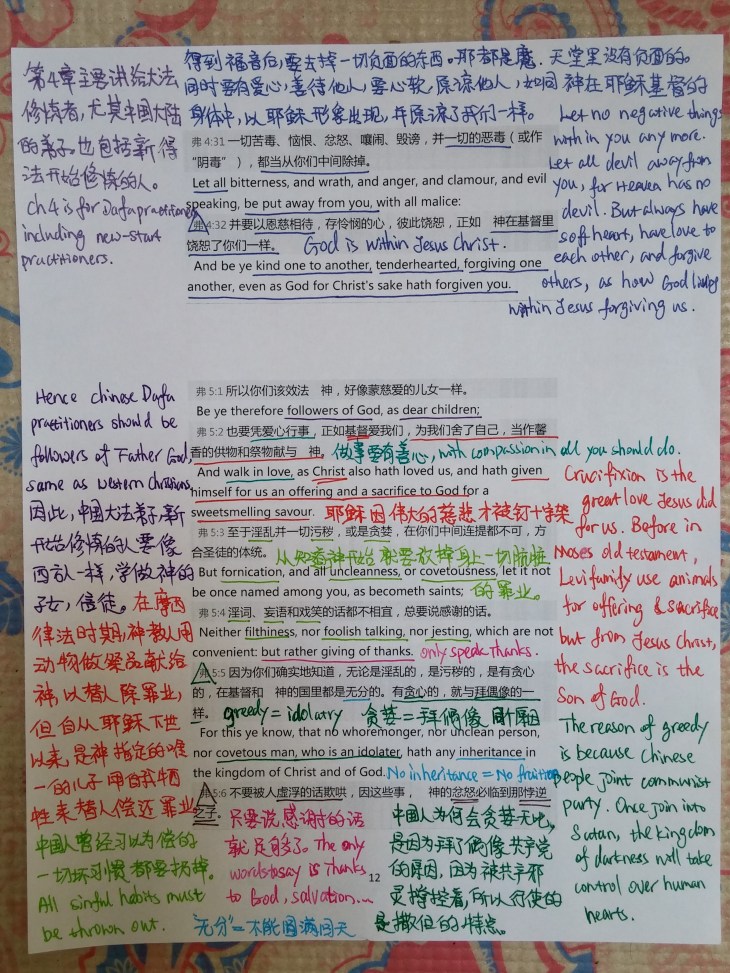 第4章主要讲给大法
修炼者,尤其中国大陆
的弟子。也包括新得
法开始修炼的人。
Ch4 is for Dafa practitioners
including new-start
practitioners.
得到福音后,要去掉一切负面的东西。那都是魔,天堂里没有负面的。
同时要有爱心,善待他人,要心软,原谅他人,如同神在耶稣基督的
身体中,以耶稣形象出现,并原谅了我们一样。
弗 4:31 一切苦毒、恼恨、忿怒、嚷闹、毁谤,并一切的恶毒(或作
“阴毒”),都当从你们中间除掉。
Let all bitterness, and wrath, and anger, and clamour, and evil
speaking, be put away from you, with all malice:
弗 4:32 并要以恩慈相待,存怜悯的心,彼此饶恕,正如 神在基督里
饶恕了你们一样。 God is within Jesus Christ.
And be ye kind one to another, tenderhearted, forgiving one
another, even as God for Christ's sake hath forgiven you.
Let no negative things
within you any more.
Let all devil away from
you, for Heaven has no
devil. But always have
soft heart, have love to
each other, and forgive
others, as how God living
within Jesus forgiving us.
Hence chinese Dafa
practitioners should be
followers of Father God,
same as western christians,
因此,中国大法弟子,新
开始修炼的人要像
西方人一样,学做神的
子女,信徒。在摩西
律法时期,神教人用
动物做祭品献给
神,以替人除罪业,
但自从耶稣下世
以来,是神指定的唯
一的儿子用自我牺
牲来替人偿还罪业
中国人曾经习以为偿的
一切坏习惯都要扔掉。
All sinful habits must
be thrown out.
弗 5:1 所以你们该效法 神,好像蒙慈爱的儿女一样。
Be ye therefore followers of God, as dear children;
弗 5:2 也要凭爱心行事,正如基督爱我们,为我们舍了自己,当作馨
香的供物和祭物献与 神。 做事要有善心, with compassion in all you should do.
And walk in love, as Christ also hath loved us, and hath given
himself for us an offering and a sacrifice to God for a
sweetsmelling savour. 耶稣因伟大的慈悲才被钉十字架
弗 5:3 至于淫乱并一切污秽,或是贪婪,在你们中间连提都不可,方
合圣徒的体统。 从知道神开始就要放掉身上一切肮脏
But fornication, and all uncleanness, or covetousness, let it not
be once named among you, as becometh saints; 的罪业。
弗 5:4 淫词、妄语和戏笑的话都不相宜,总要说感谢的话。
Neither filthiness, nor foolish talking, nor jesting, which are not
convenient: but rather giving of thanks. only speak thanks.
弗 5:5 因为你们确实地知道,无论是淫乱的,是污秽的,是有贪心
的,在基督和 神的国里都是无分的。有贪心的,就与拜偶像的一
样。 greedy = idolatry 贪婪=拜偶像 同个原因
For this ye know, that no whoremonger, nor unclean person,
nor covetous man, who is an idolater, hath any inheritance in
the kingdom of Christ and of God. No inheritance = No fruition
弗 5:6 不要被人虚浮的话欺哄,因这些事, 神的忿怒必临到那悖逆
之子。
只要说感谢神的话
就足够了。The only
words to say is thanks
to God, salvation...
"无分"=不能圆满回天
12
中国人为何会贪婪无比,
是因为拜了偶像共产党
的原因,因为被共产邪
灵撑控着,所以行使的
是撒但的特点。
Crucifixion is the
great love Jesus did
for us. Before in
Moses old testament,
Levi family use animals
for offering & sacrifice
but from Jesus Christ,
the sacrifice is the
Son of God.
The reason of greedy
is because Chinese
people joint communist
party. Once join into
Satan, the kingdom
of darkness will take
control over human
hearts.